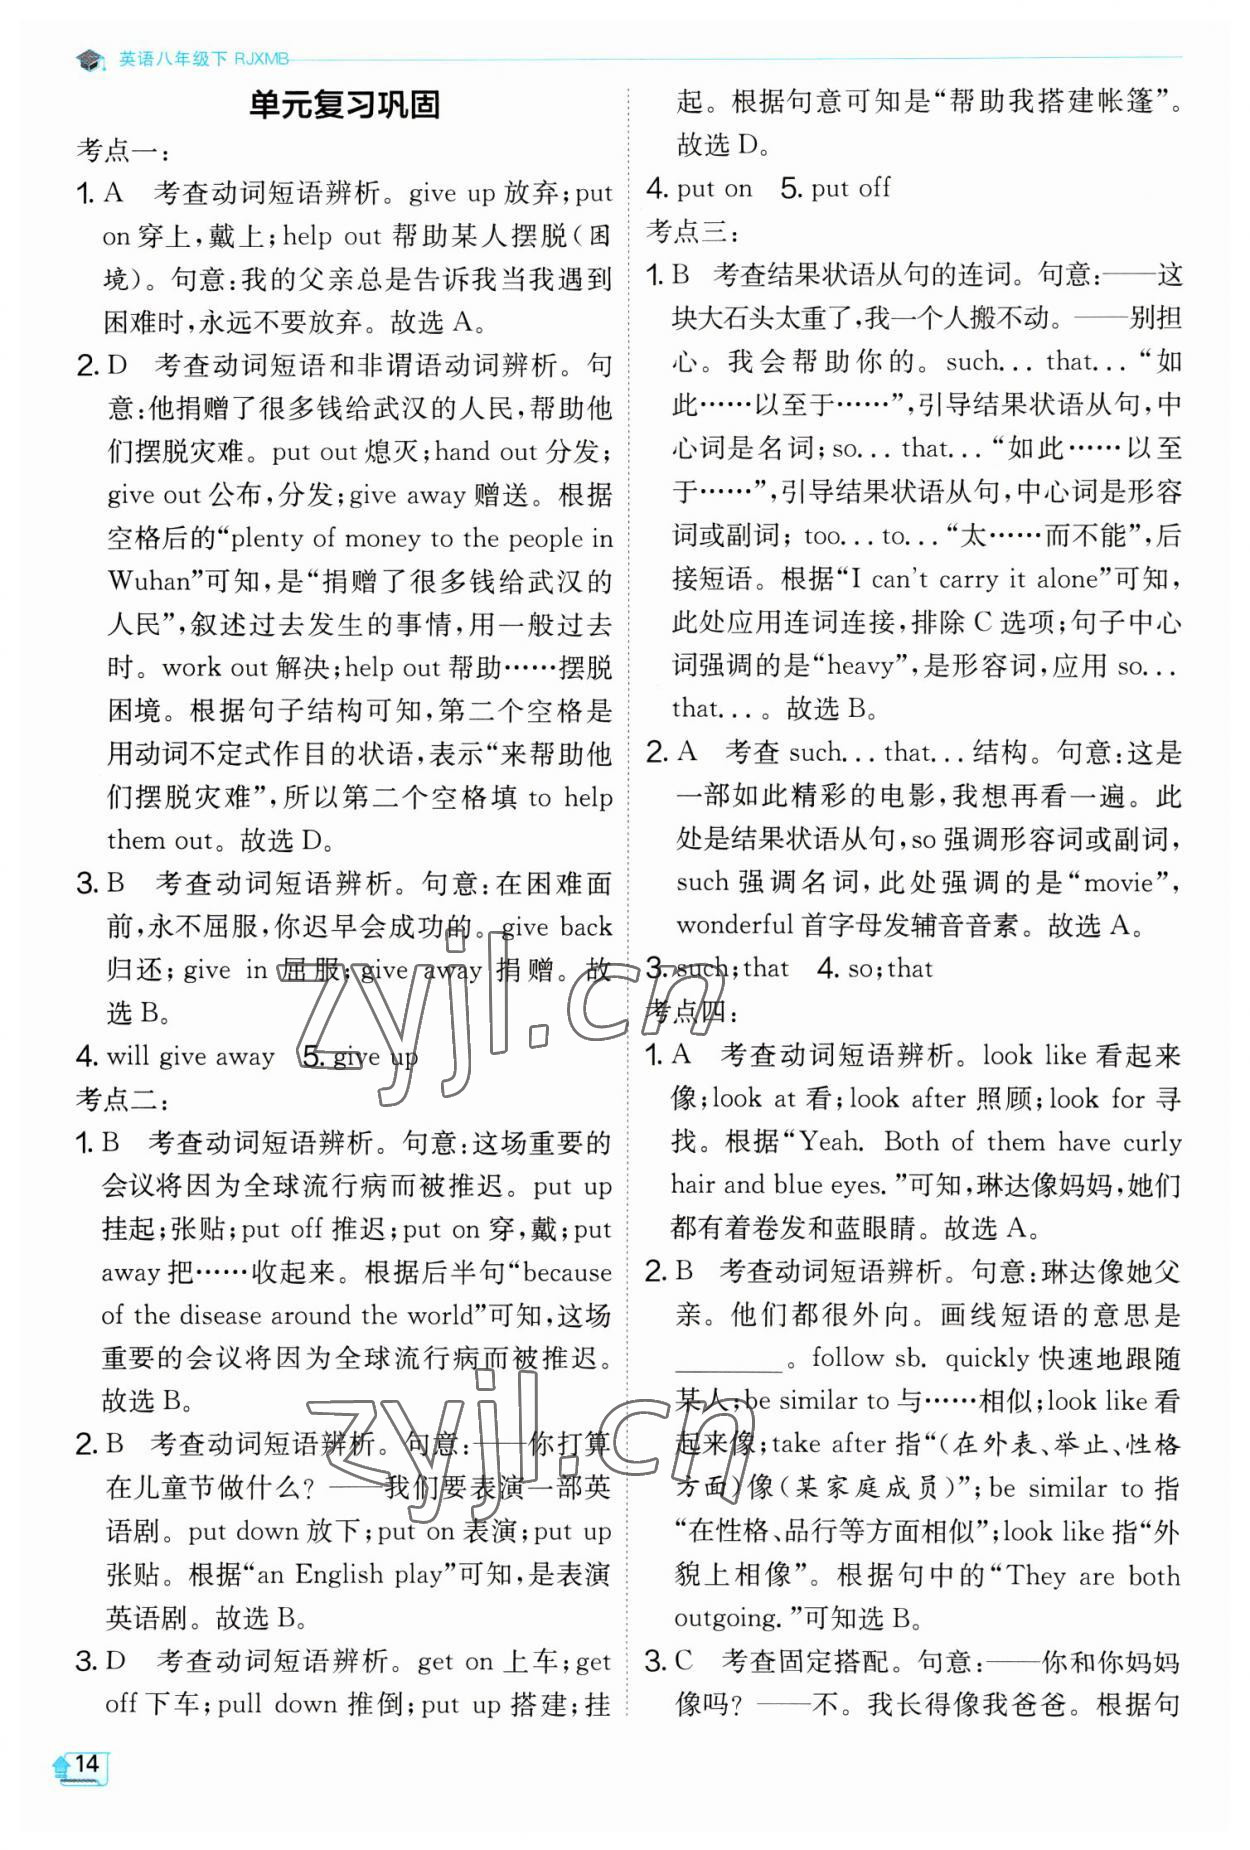 英语八年级下 RJXMB
单元复习巩固
考点一：
1. A　考查动词短语辨析。give up 放弃；put
on 穿上，戴上；help out 帮助某人摆脱（困
境）。句意：我的父亲总是告诉我当我遇到
困难时，永远不要放弃。故选 A。
2. D　考查动词短语和非谓语动词辨析。句
意：他捐赠了很多钱给武汉的人民，帮助他
们摆脱灾难。put out 熄灭；hand out 分发；
give out 公布，分发；give away 赠送。根据
空格后的“plenty of money to the people in
Wuhan”可知，是“捐赠了很多钱给武汉的
人民”，叙述过去发生的事情，用一般过去
时。work out 解决；help out 帮助……摆脱
困境。根据句子结构可知，第二个空格是
用动词不定式作目的状语，表示“来帮助他
们摆脱灾难”，所以第二个空格填 to help
them out。故选 D。
3. B　考查动词短语辨析。句意：在困难面
前，永不屈服，你迟早会成功的。give back
归还；give in 屈服；give away 捐赠。故
选 B。
4. will give away　5. give up
考点二：
1. B　考查动词短语辨析。句意：这场重要的
会议将因为全球流行病而被推迟。put up
挂起；张贴；put off 推迟；put on 穿，戴；put
away 把……收起来。根据后半句“because
of the disease around the world”可知，这场
重要的会议将因为全球流行病而被推迟。
故选 B。
2. B　考查动词短语辨析。句意：——你打算
在儿童节做什么？——我们要表演一部英
语剧。put down 放下；put on 表演；put up
张贴。根据“an English play”可知，是表演
英语剧。故选 B。
3. D　考查动词短语辨析。get on 上车；get
off 下车；pull down 推倒；put up 搭建；挂
起。根据句意可知是“帮助我搭建帐篷”。
故选 D。
4. put on　5. put off
考点三：
1. B　考查结果状语从句的连词。句意：——这
块大石头太重了，我一个人搬不动。——别担
心。我会帮助你的。such... that... “如
此……以至于……”，引导结果状语从句，中
心词是名词；so... that... “如此……以至
于……”，引导结果状语从句，中心词是形容
词或副词；too... to... “太……而不能”，后
接短语。根据“I can't carry it alone”可知，
此处应用连词连接，排除 C 选项；句子中心
词强调的是“heavy”，是形容词，应用 so...
that...。故选 B。
2. A　考查 such... that... 结构。句意：这是
一部如此精彩的电影，我想再看一遍。此
处是结果状语从句，so 强调形容词或副词，
such 强调名词，此处强调的是“movie”，
wonderful 首字母发辅音音素。故选 A。
3. such；that　4. so；that
考点四：
1. A　考查动词短语辨析。look like 看起来
像；look at 看；look after 照顾；look for 寻
找。根据“Yeah. Both of them have curly
hair and blue eyes. ”可知，琳达像妈妈，她们
都有着卷发和蓝眼睛。故选 A。
2. B　考查动词短语辨析。句意：琳达像她父
亲。他们都很外向。画线短语的意思是
________。follow sb. quickly 快速地跟随
某人；be similar to 与……相似；look like 看
起来像；take after 指“（在外表、举止、性格
方面）像（某家庭成员）”；be similar to 指
“在性格、品行等方面相似”；look like 指“外
貌上相像”。根据句中的“They are both
outgoing. ”可知选 B。
3. C　考查固定搭配。句意：——你和你妈妈
像吗？——不。我长得像我爸爸。根据句
14
zyjl.cn
zyjl.cn